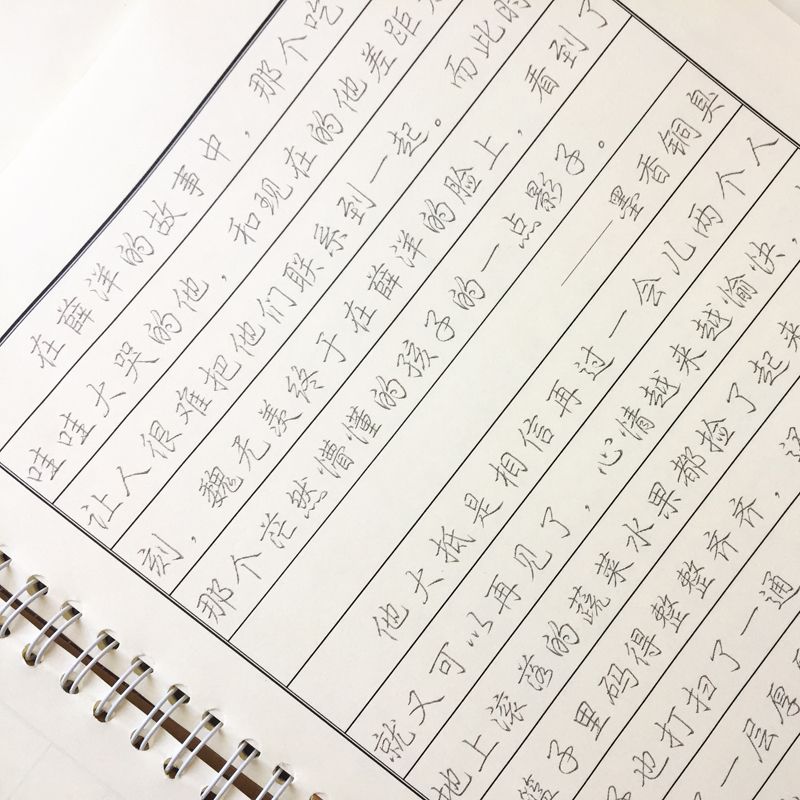 在薛洋的故事中，那个吃
哇哇大哭的他，和现在的他差距
让人很难把他们联系到一起。而此时
刻，魏无羡终于在薛洋的脸上，看到了
那个茫然懵懂的孩子的一点影子。
——墨香铜臭
他大抵是相信再过一会儿两个人
就又可以再见了，心情越来越愉快，
地上滚落的蔬菜水果都捡了起来
篮子里码得整整齐齐，
也打扫了一通
一层厚